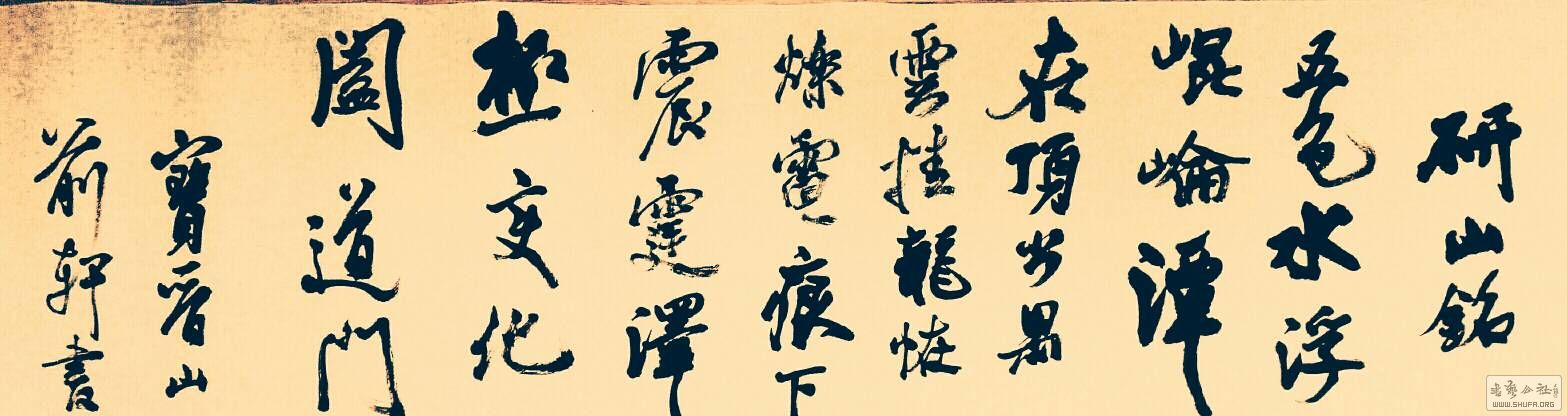 研山銘
五色水浮
崐崘潭
在頂出黑
雲挂龍恠
爍電痕下
震霆澤
極變化
闔道門
寶晉山
前軒書
书艺公社
WWW.SHUFA.ORG